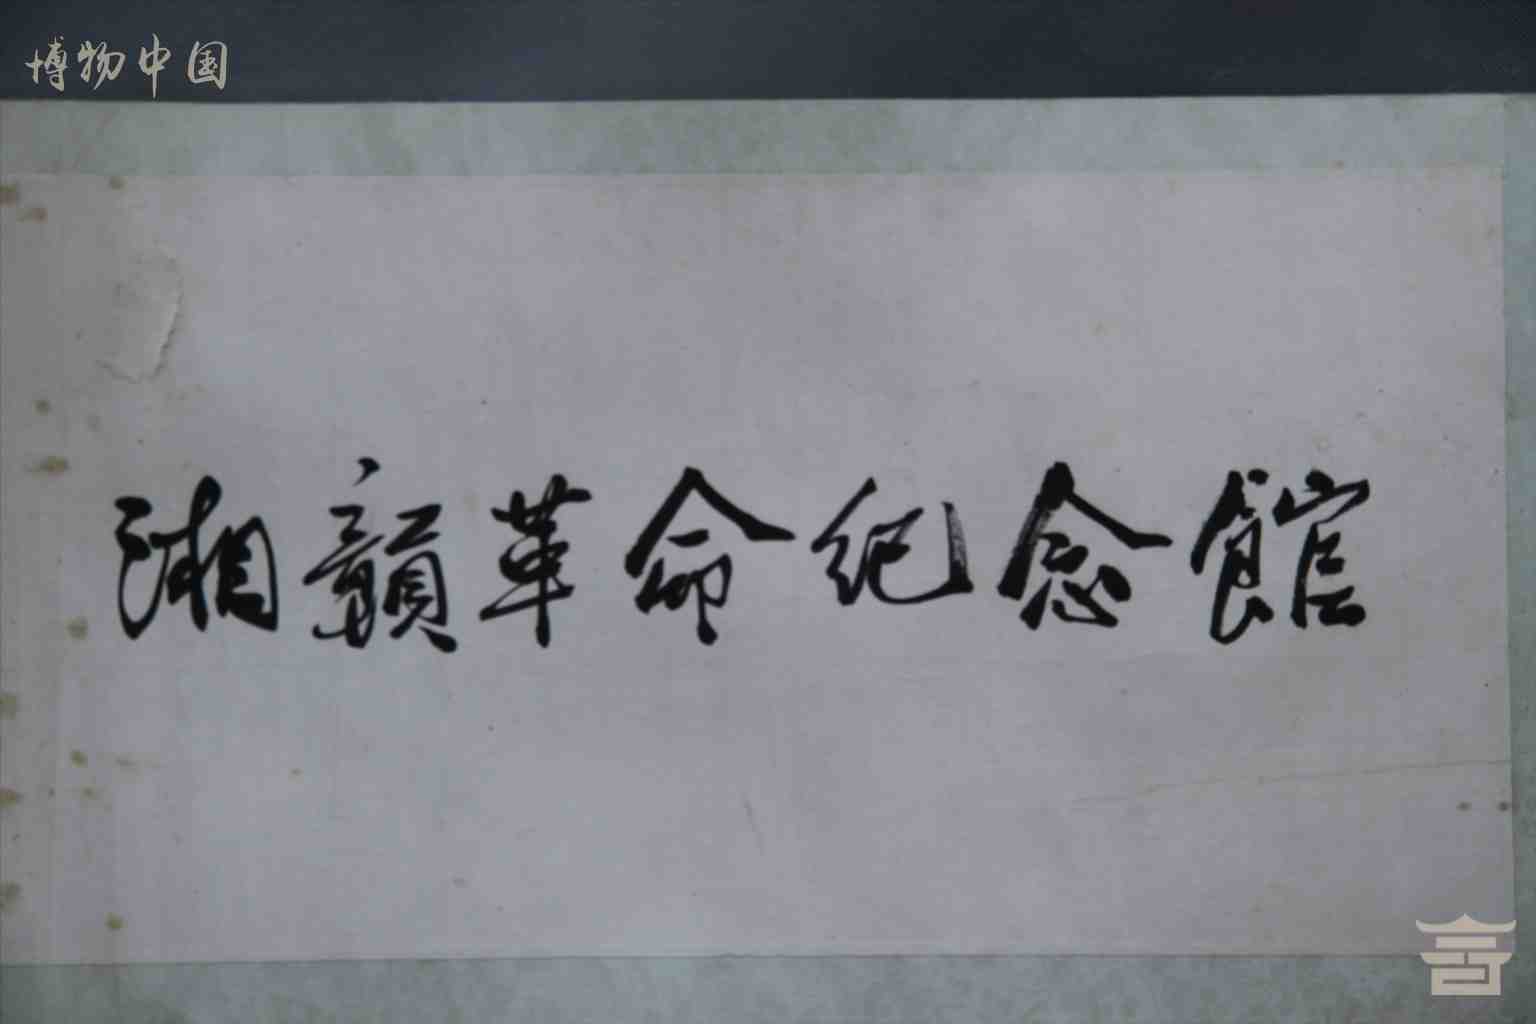 博物中国
湘贛革命纪念館